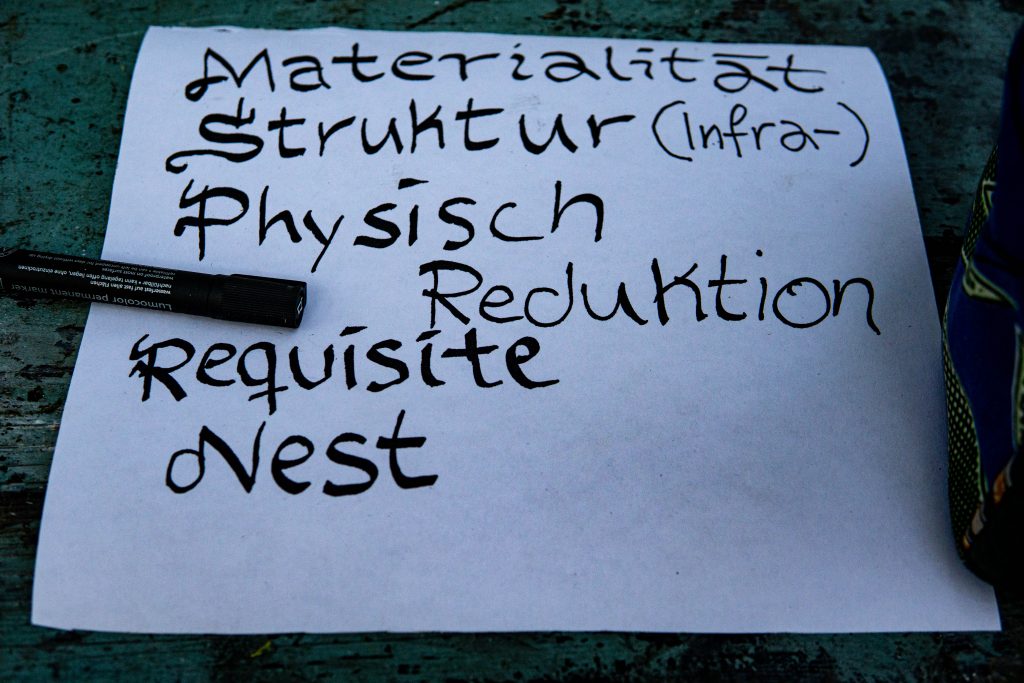 Materialität
Struktur (Infra-)
Physisch
Reduktion
Requisite
Nest
Lumocolor permanent marker